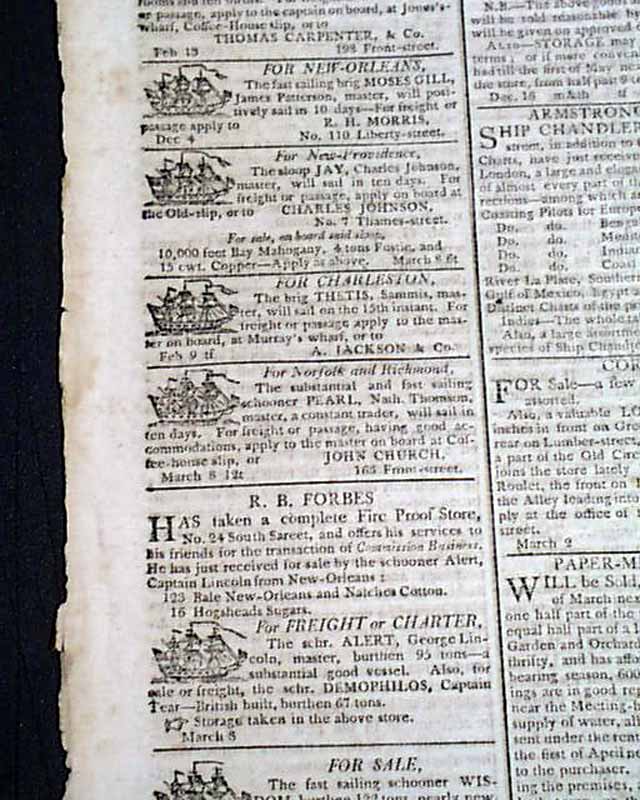 rooms and ten
or passage, apply to the captain on board, at Jones's-
wharf, Coffee-House slip, or to
THOMAS CARPENTER, & Co.
Feb 13 198 Front-street.
FOR NEW-ORLEANS,
The fast sailing brig MOSES GILL,
James Patterson, master, will posi-
tively sail in 10 days—For freight or
passage apply to R. H. MORRIS,
Dec 4 No. 110 Liberty-street.
For New-Providence,
The sloop JAY, Charles Johnson,
master, will sail in ten days. For
freight or passage, apply on board at
the Old-slip, or to CHARLES JOHNSON,
No. 7 Thames-street.
For sale, on board said sloop,
10,000 feet Bay Mahogany, 4 tons Fustic, and
15 cwt. Copper—Apply as above. March 8 6t
FOR CHARLESTON,
The brig THETIS, Sammis, mas-
ter, will sail on the 15th instant. For
freight or passage apply to the mas-
ter on board, at Murray's wharf, or to
Feb 9 tf A. JACKSON & Co.
For Norfolk and Richmond,
The substantial and fast sailing
schooner PEARL, Nath. Thomson,
master, a constant trader, will sail in
ten days. For freight or passage, having good ac-
commodations, apply to the master on board at Cof-
fee-house slip, or JOHN CHURCH,
March 8 12t 165 Front-street.
R. B. FORBES
HAS taken a complete Fire Proof Store,
No. 24 South Sareet, and offers his services to
his friends for the transaction of Commission Business.
He has just received for sale by the schooner Alert,
Captain Lincoln from New-Orleans :
123 Bale New-Orleans and Natches Cotton.
16 Hogsheads Sugars.
For FREIGHT or CHARTER,
The schr. ALERT, George Lin-
coln, master, burthen 95 tons—a
substantial good vessel. Also, for
sale or freight, the schr. DEMOPHILOS, Captain
Tear—British built, burthen 67 tons.
☞ Storage taken in the above store.
March 8
FOR SALE,
The fast sailing schooner WIS-
DOM burthen 122 tons, nearly new,
N.B.—The above goods
will be sold reasonable
will be given on approved
Also—STORAGE may
terms; or if more conven
had till the first of May ne
the store, from half past 9
Dec. 16 m&th tf
ARMSTRON
SHIP CHANDLE
street, in addition to
Charts, have just receive
London, a large and elega
of almost every part of
rections—among which a
Coasting Pilots for Europ
Do. do. Beng
Do. do. Medit
Do. do. India
Do. do. Coast
River La Plate, Southern
Gulf of Mexico, Egypt
Distinct Charts of the
Indies—The whole
Also, a large assortm
species of Ship Chandl
COR
FOR Sale—a few
assorted.
Also, a valuable LO
inches in front on Gre
rear on Lumber-street,
a part of the Old Circ
joins the store lately
Roulet, the front on
the Alley leading into
ply at the office of
street.
March 2
PAPER-M
WILL be Sold
of March nex
one half part of the
equal half part of a
Garden and Orchard
thrifty, and has aff
bearing season, 600
ings are in good re
near the Meeting-h
supply of water, al
sent under the rent
the first of April n
to the purchaser.
ing the premises,